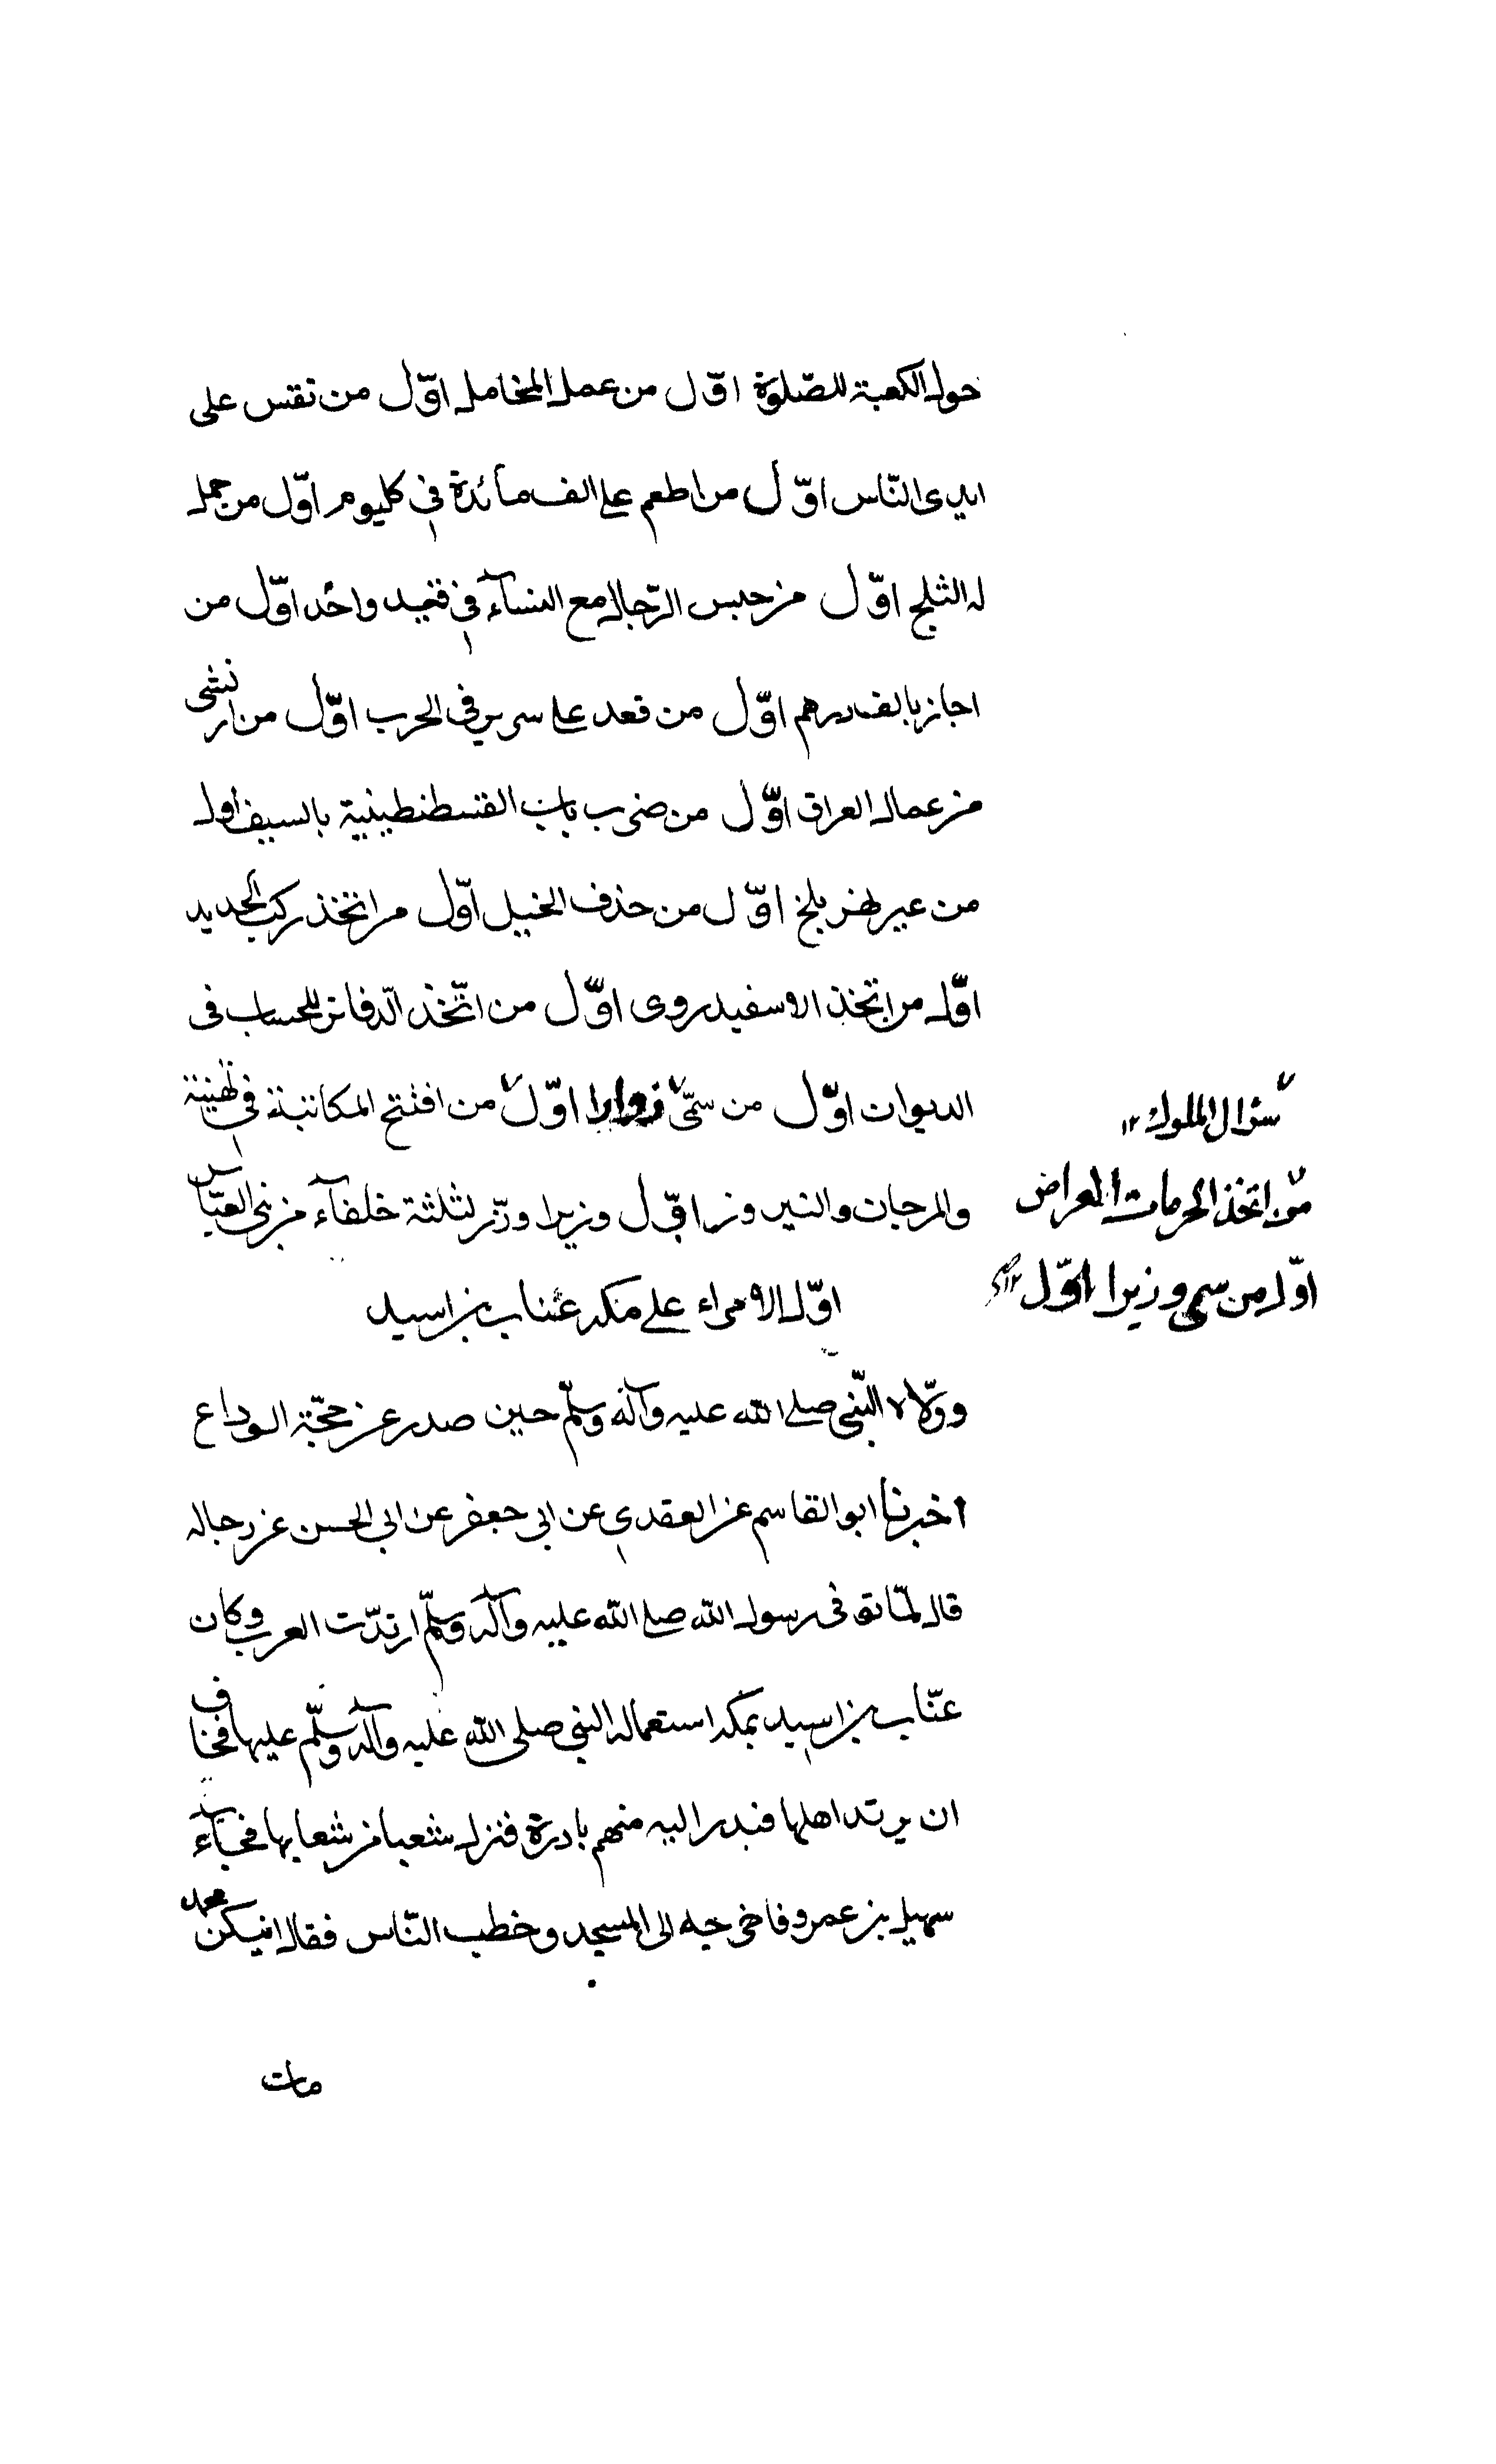 حول الكعبة للصّلوة اوّل من عمل المخامل اوّل من نقس على
ايدى النّاس اوّل من اطعم على الف مائدة فى كليوم اوّل من حمل
له الثلج اوّل من حبس الرّجال مع النساء فى قيد واحد اوّل من
اجاز بالف درهم اوّل من قعد على سرير فى الحرب اوّل من ارتشى
من عمال العراق اوّل من ضرب باب القسطنطينية بالسيف اول
من عبر نهر بلخ اوّل من حذف الخيل اوّل من اتخذ ركب الحديد
اوّل من اتخذ الاسفيدروى اوّل من اتّخذ الدفاتر للحساب فى
الديوان اوّل من سمّى زوارا اوّل من افتتح المكاتبة فى تهنية
والمرجان والنير وزر اوّل وزيرا وزّر لثلثة خلفاء من بنى العبّاس
سؤال الملوك ١٢
من اتخذ الحرمات المعراض
اوّل من سمى وزيرا اوّل ١٢
اوّل الامراء على مكه عتاب بن اسيد
وولّاه النّبى صلى الله عليه وآله وسلّم حين صدر عن حجّة الوداع
اخبرنا ابو القاسم عن العقدى عن ابى جعفر عن ابى الحسن عن رجاله
قال لمّا توفى رسول الله صلى الله عليه وآله وسلّم ارتدّت العرب وكان
عتّاب بن اسيد بمكه استعماله النبى صلى الله عليه وآله وسلّم عليها فخاف
ان يرتد اهلها فبدر اليه منهم بادرة فنزل شعبا من شعابها فجاء
سهيل بن عمرو فاخرجه الى المسجد وخطب النّاس فقال انيكن محمد
مات